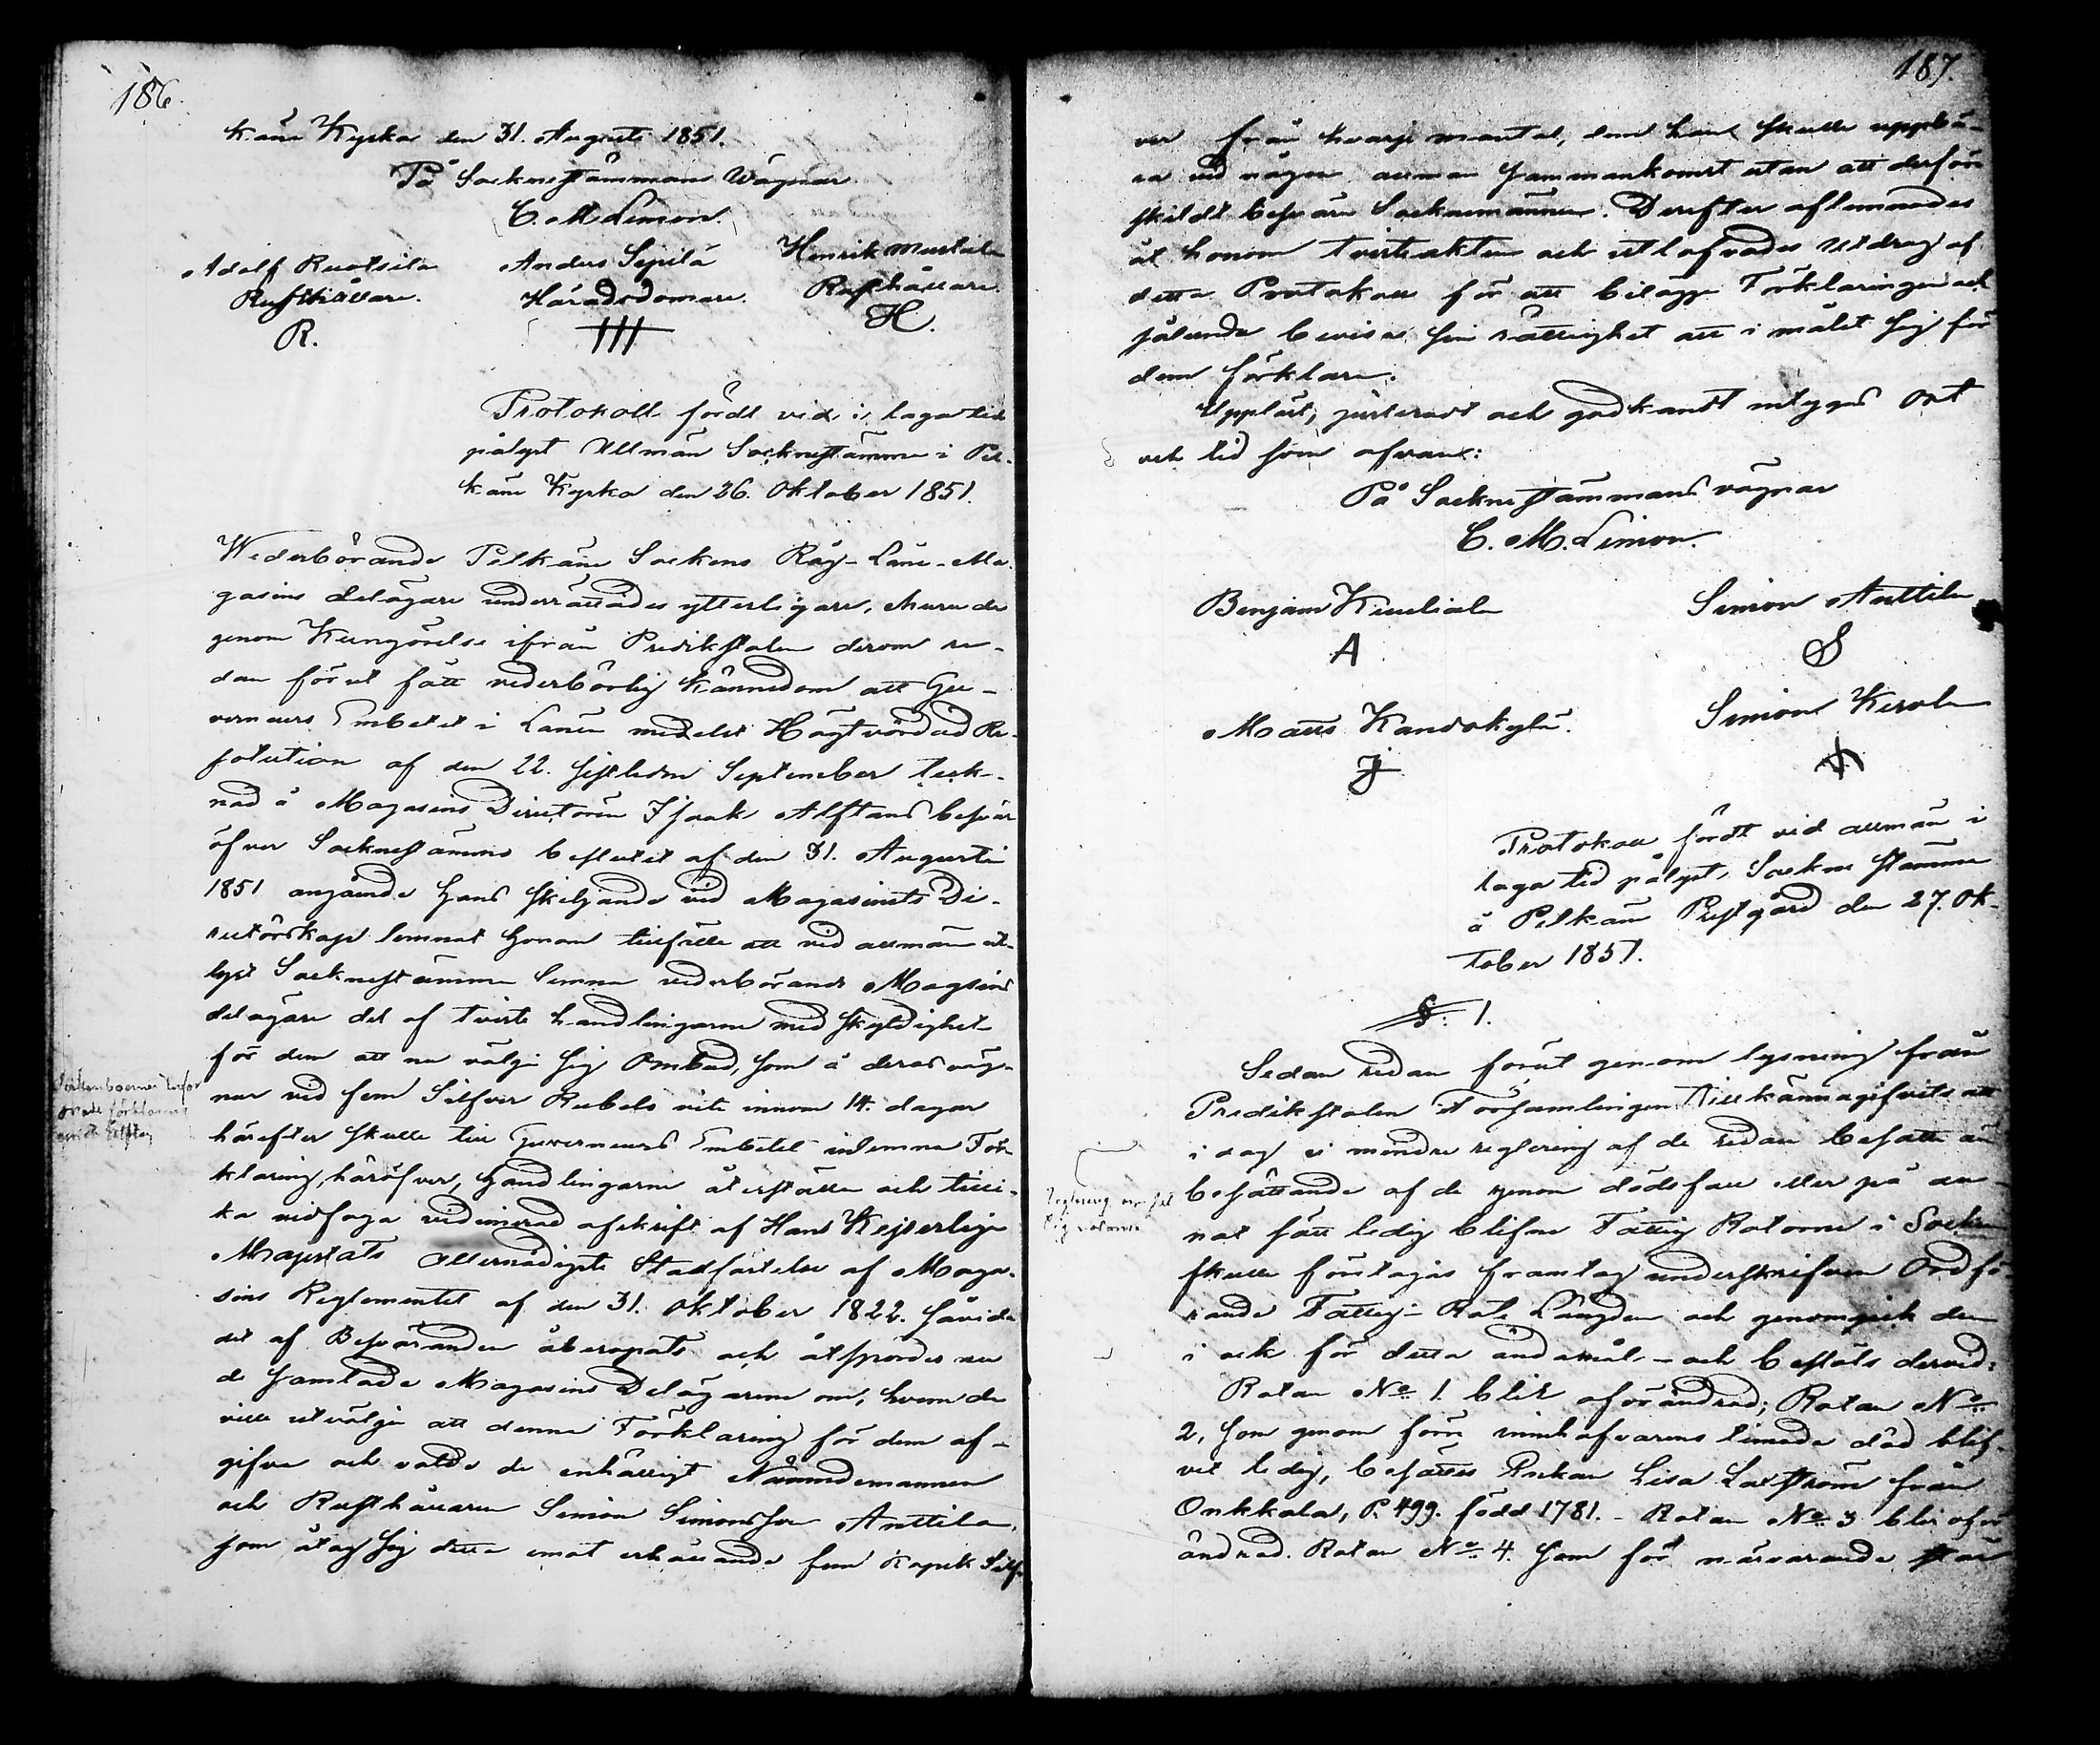 186.
käne Kyrka den 31. Augusti 1851.
På Socknestämmans Wägnar
C. M. Limon.
Adolf Ruotsila Anders Sipilä Henrik Mustila
Rusthållare. Häradsdomare. Rusthållare
R. H.
Protokoll fördt vid i laga tid
pålyst Allmän Socknestämma i Pel-
käne Kyrka den 26. Oktober 1851.
Wederbörande Pelkäne Sockens Råg-Låne-Ma-
gasins delägare underrättades ytterligare, ehuru de
genom Kungörelse ifrån Predikstolen derom re-
dan förut fått vederbörlig kännedom att Gu-
verneurs Embetet i Länen medelst Högtvördad Re-
solution af den 22. sistledne September teck-
nad å Magasins Directoren Isaak Alftans besvär
öfver Socknestämmo beslutet af den 31. Augusti
1851 angående hans skiljande vid Magasinets Di-
rectörskap lemnat honom tillfälle att vid allmän ut-
lyst Socknestämma lemna vederbörande Magasins
delägare del af tviste handlingarne med skyldighet
för dem att nu välja sig Ombud, som å deras väg-
nar vid fem Silfver Rubels vite innom 14. dagar
härefter skulle till Guverneurs Embetet inlemna För-
klaring häröfver, handlingarne återställa och tilli-
ka vidfoga vidimerad afskrift af Hans Kejserliga
Majestäts Allernådigste Stadfästelse af Maga-
sins Reglementet af den 31. Oktober 1822. såvida
det af Besväranden åberopats och åtspordes nu
de samlade Magasins Delägarene om, hvem de
ville utvälja att denna Förklaring för dem af-
gifva och valde de enhälligt Nämndemannen
och Rusthållaren Simon Simonsson Anttila,
som åtog sig detta emot erhållande fem kopek Silf-
187.
ver från hvarje mantal, dem han skulle uppbä-
ra vid någon annan sammankomst utan att derför
skildt besvära Socknemännen. Derefter aflemnades
åt honom tvisteakten och utlofvades utdrag af
detta Protokoll för att bilägga Förklaringen och
sålunda bevisa sin rättighet att i målet sig för
dem förklara.
Uppläst, justeradt och godkändt intygas Ort
och tid som ofvan:
På Socknestämmans vägnar
C. M. Limon.
Benjam Simon Anttila
A S
Matts Kandokylä. Simon Kerola
J
Protokoll fördt vid allmän i
laga tid pålyst, Sockne stämma
å Pelkäne Prestgård den 27. Ok-
tober 1851.
§: 1.
Sedan redan förut genom lysning från
Predikstolen Församlingen tillkännagifvits att
i dag ej mindre reglering af de redan besatta än
Reglering
besättande af de genom dödsfall eller på an-
nat sätt ledig blifne Fattig Rotorne i Socken
skulle företagas framtog underskrifven Ordfö-
rande Fattig-Rote Längden och genomgick den
i och för detta ändamål - och beslöts dervid:
Rotan No 1. blir oförändrad; Rotan No
2, som genom förre innehafvarens timade död blif-
vit ledig, besattes Enkan Lisa från
Onkkala, P. 499. född 1781. - Rotan No 3 blir oför-
ändrad. Rotan No 4. som för närvarande står